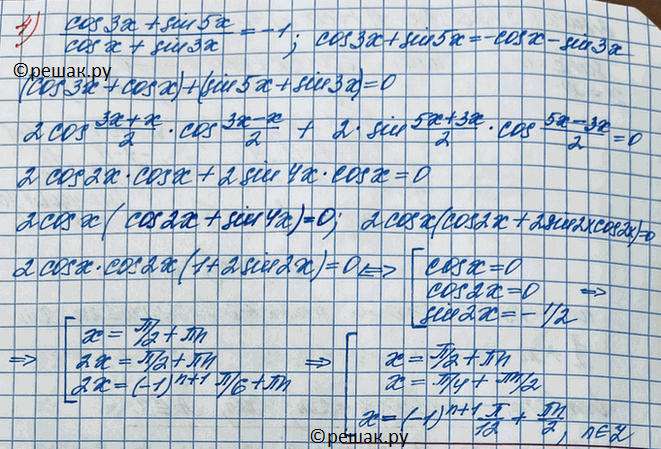 4) (cos3x + sin5x)/(cosx + sin3x) = -1; cos3x + sin5x = -cosx - sin3x
©решак.ру
(cos3x + cosx) + (sin5x + sin3x) = 0
2cos (3x+x)/2 · cos (3x-x)/2 + 2· sin (5x+3x)/2 · cos (5x-3x)/2 = 0
2cos2x·cosx + 2sin4x·cosx = 0
2cosx( cos2x + sin4x) = 0; 2cosx(cos2x + 2sin2xcos2x) = 0
2cosx·cos2x(1 + 2sin2x) = 0 <=> [ cosx = 0
cos2x = 0 =>
sin2x = -1/2
=> [ x = π/2 + πn
2x = π/2 + πn
2x = (-1)^(n+1) π/6 + πn
=> [ x = π/2 + πn
x = π/4 + πn/2
x = (-1)^(n+1) π/12 + πn/2, n∈Z
©решак.ру